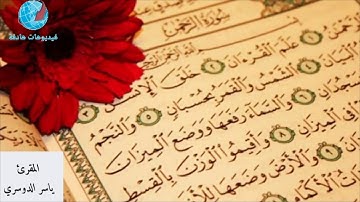 فيديوهات هادفة
سورة الرحمن
علم القرءان ۝ خلق الإنسن
البيان ۝ الشمس والقمر بحسبان ۝ والنجم
يسجدان ۝ والسماء رفعها ووضع الميزان
في الميزان ۝ وأقيموا الوزن بالقسط
۝ والأرض وضعها للأ
المقرئ
ياسر الدوسري